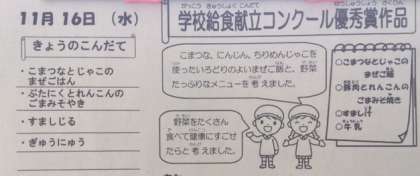 11月 16日 (水)
きょうのこんだて
・こまつなとじゃこの
まぜごはん
・ぶたにくとれんこんの
ごまみそやき
・すましじる
・ぎゅうにゅう
がっこう きゅうしょく こんだて ゆうしゅうしょう さくひん
学校給食献立コンクール優秀賞作品
こまつな、にんじん、ちりめんじゃこを
使ったいろどりのよいまぜご飯と、野菜
たっぷりなメニューを考えました。
野菜をたくさん
食べて健康にすごせ
たらと考えました。
○こまつなとじゃこの
まぜご飯
○豚肉とれんこんの
ごまみそ焼き
○すまし汁
○牛乳